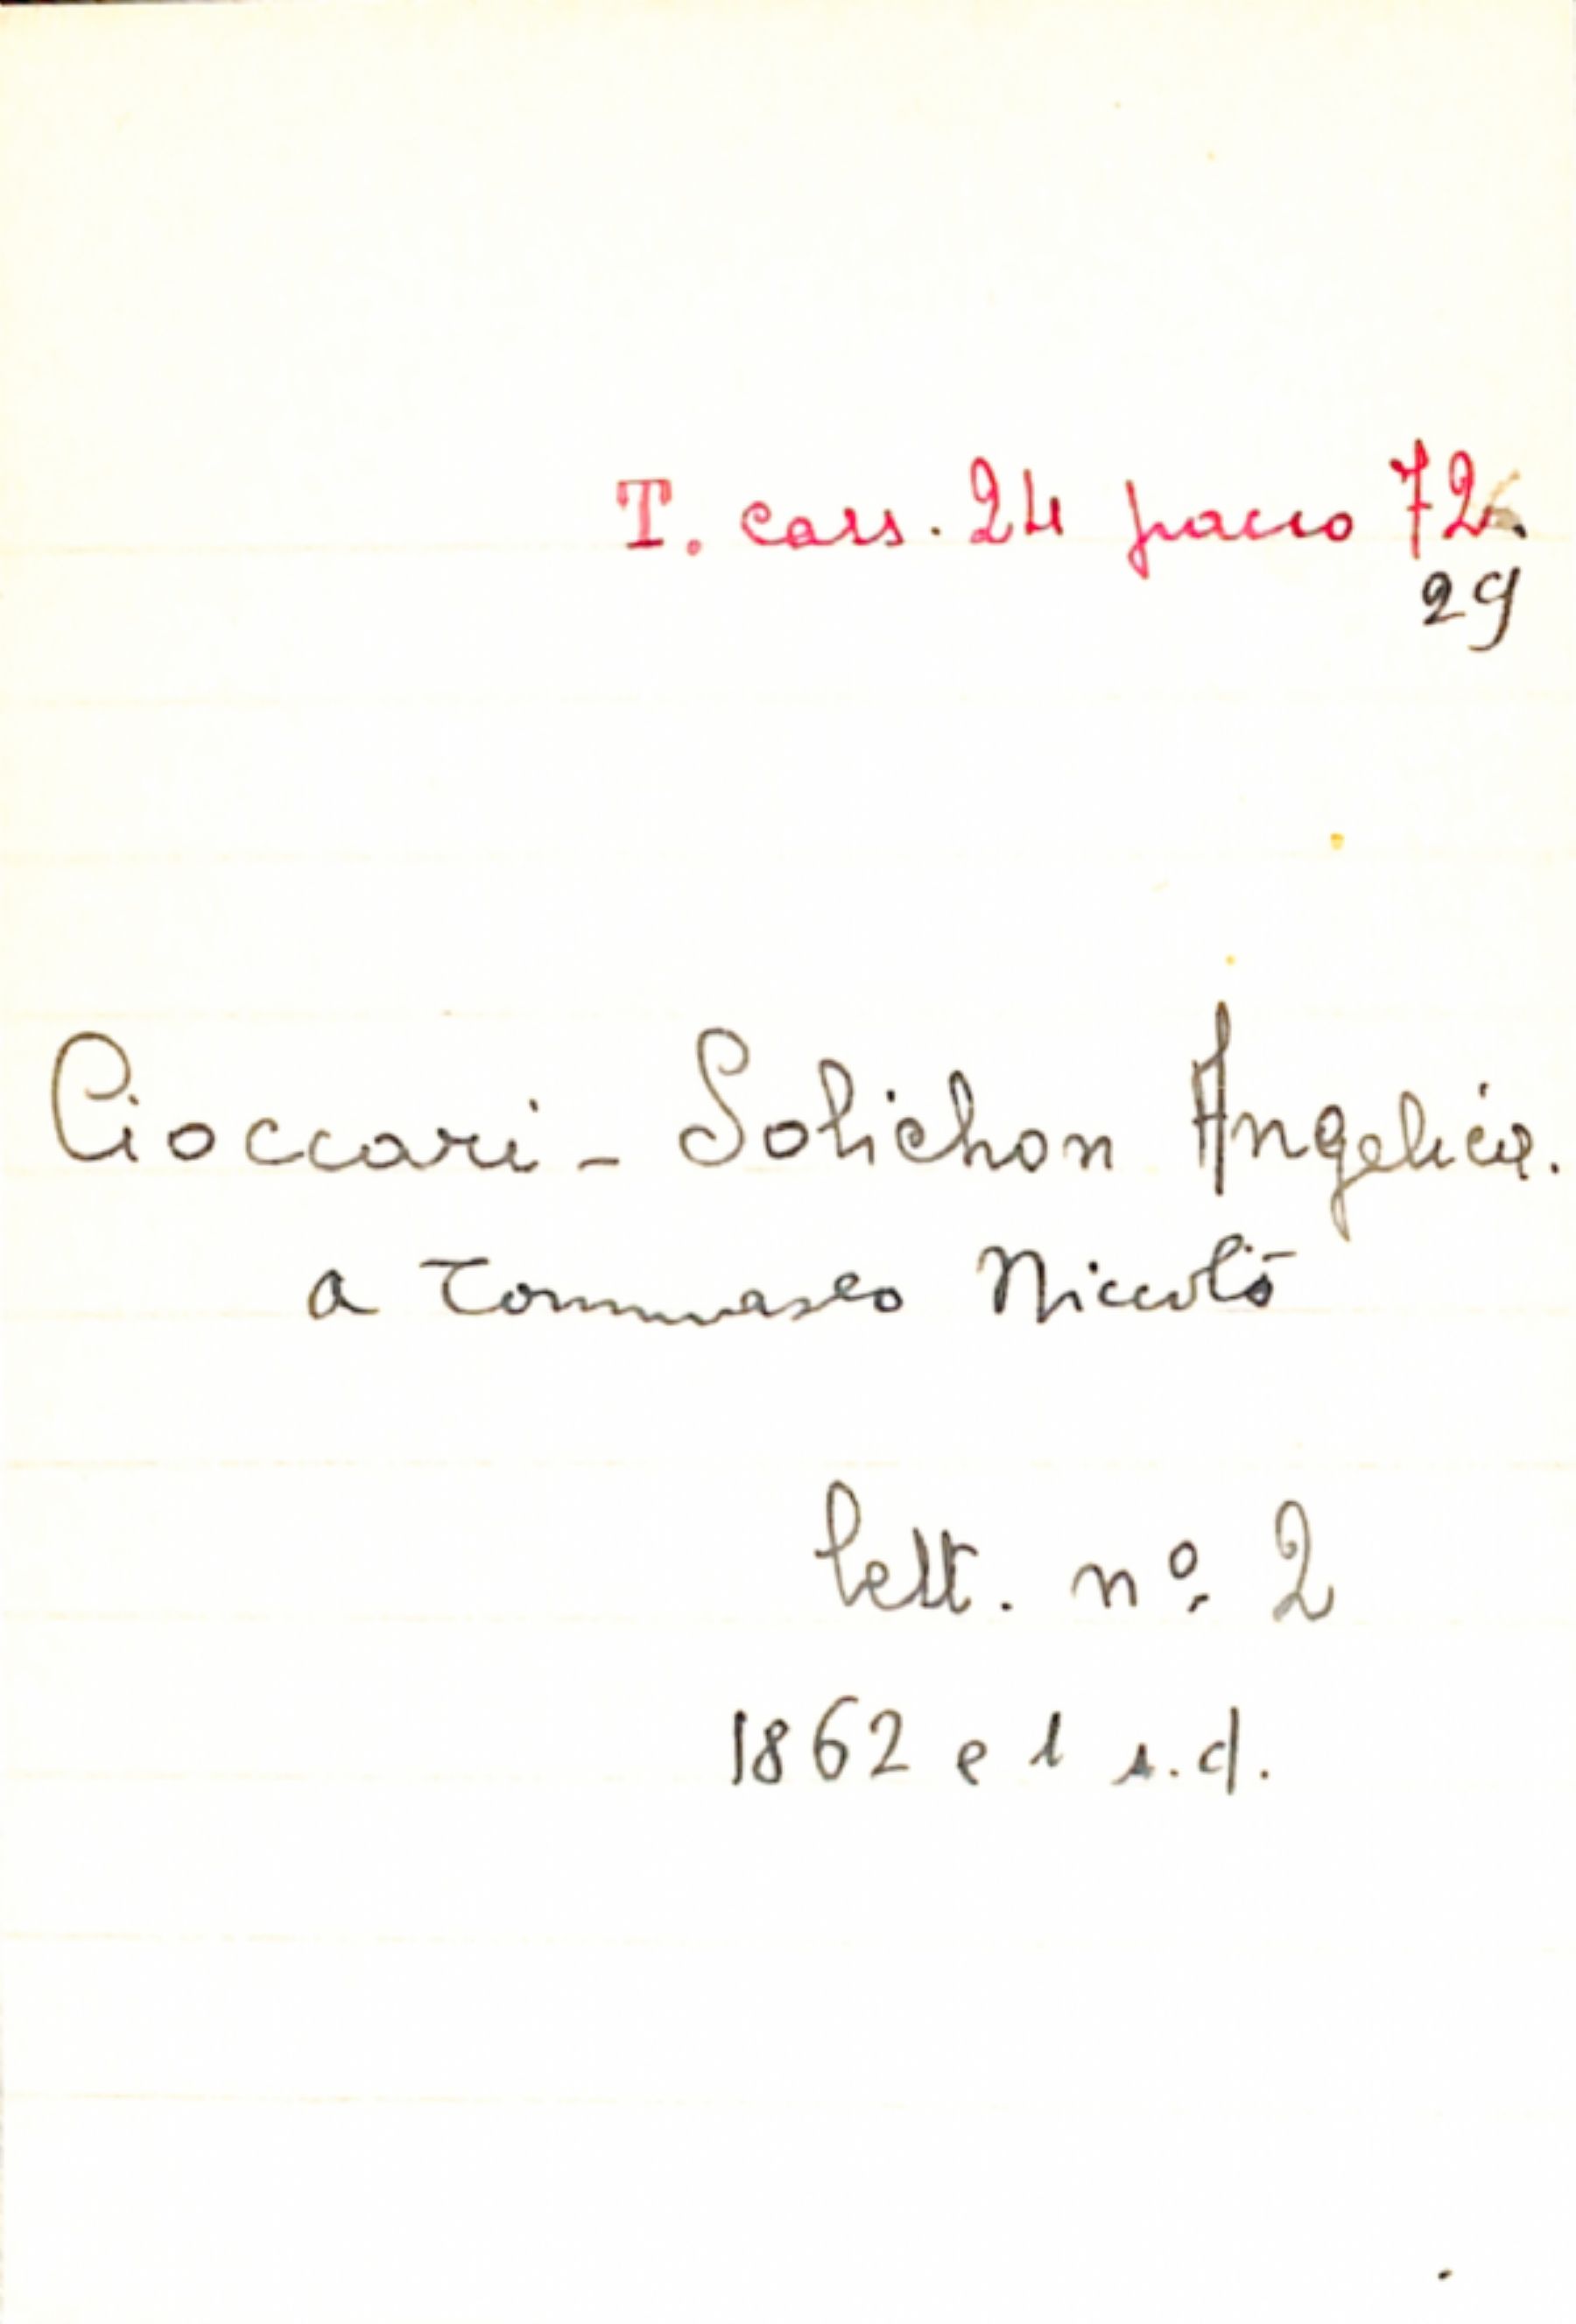 T. cass. 24 pacco 72.
29
Cioccari - Solichon Angelica.
a Tommaseo Niccolò
lett. nº. 2
1862 e 1 s.d.